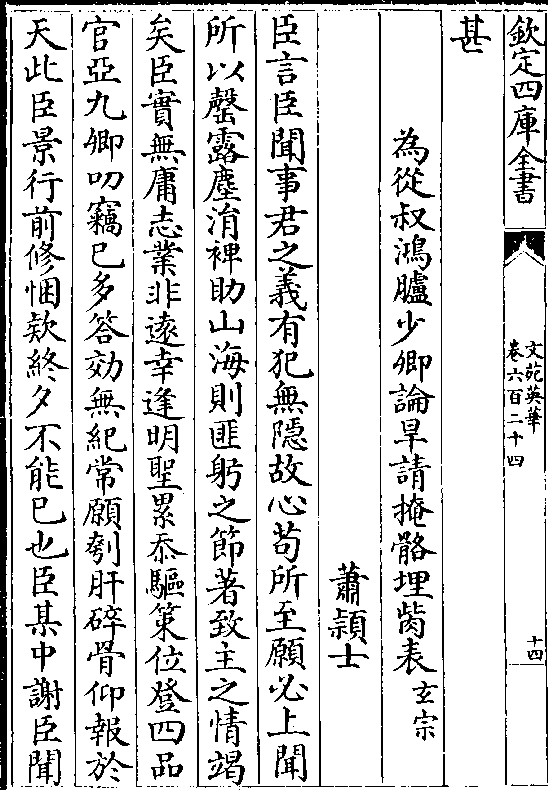 欽定四庫全書
文苑英華
卷六百二十四
十四
甚
為從叔鴻臚少卿論旱請掩骼埋胔表玄宗
蕭穎士
臣言臣聞事君之義有犯無隠故心苟所至願必上聞
所以罄露塵涓裨助山海則匪躬之節著致主之情竭
矣臣實無庸志業非逺幸逢明聖累忝驅策位登四品
官亞九卿叨竊已多答効無紀常願刳肝碎骨仰報於
天此臣景行前修悃欵終夕不能已也臣某中謝臣聞